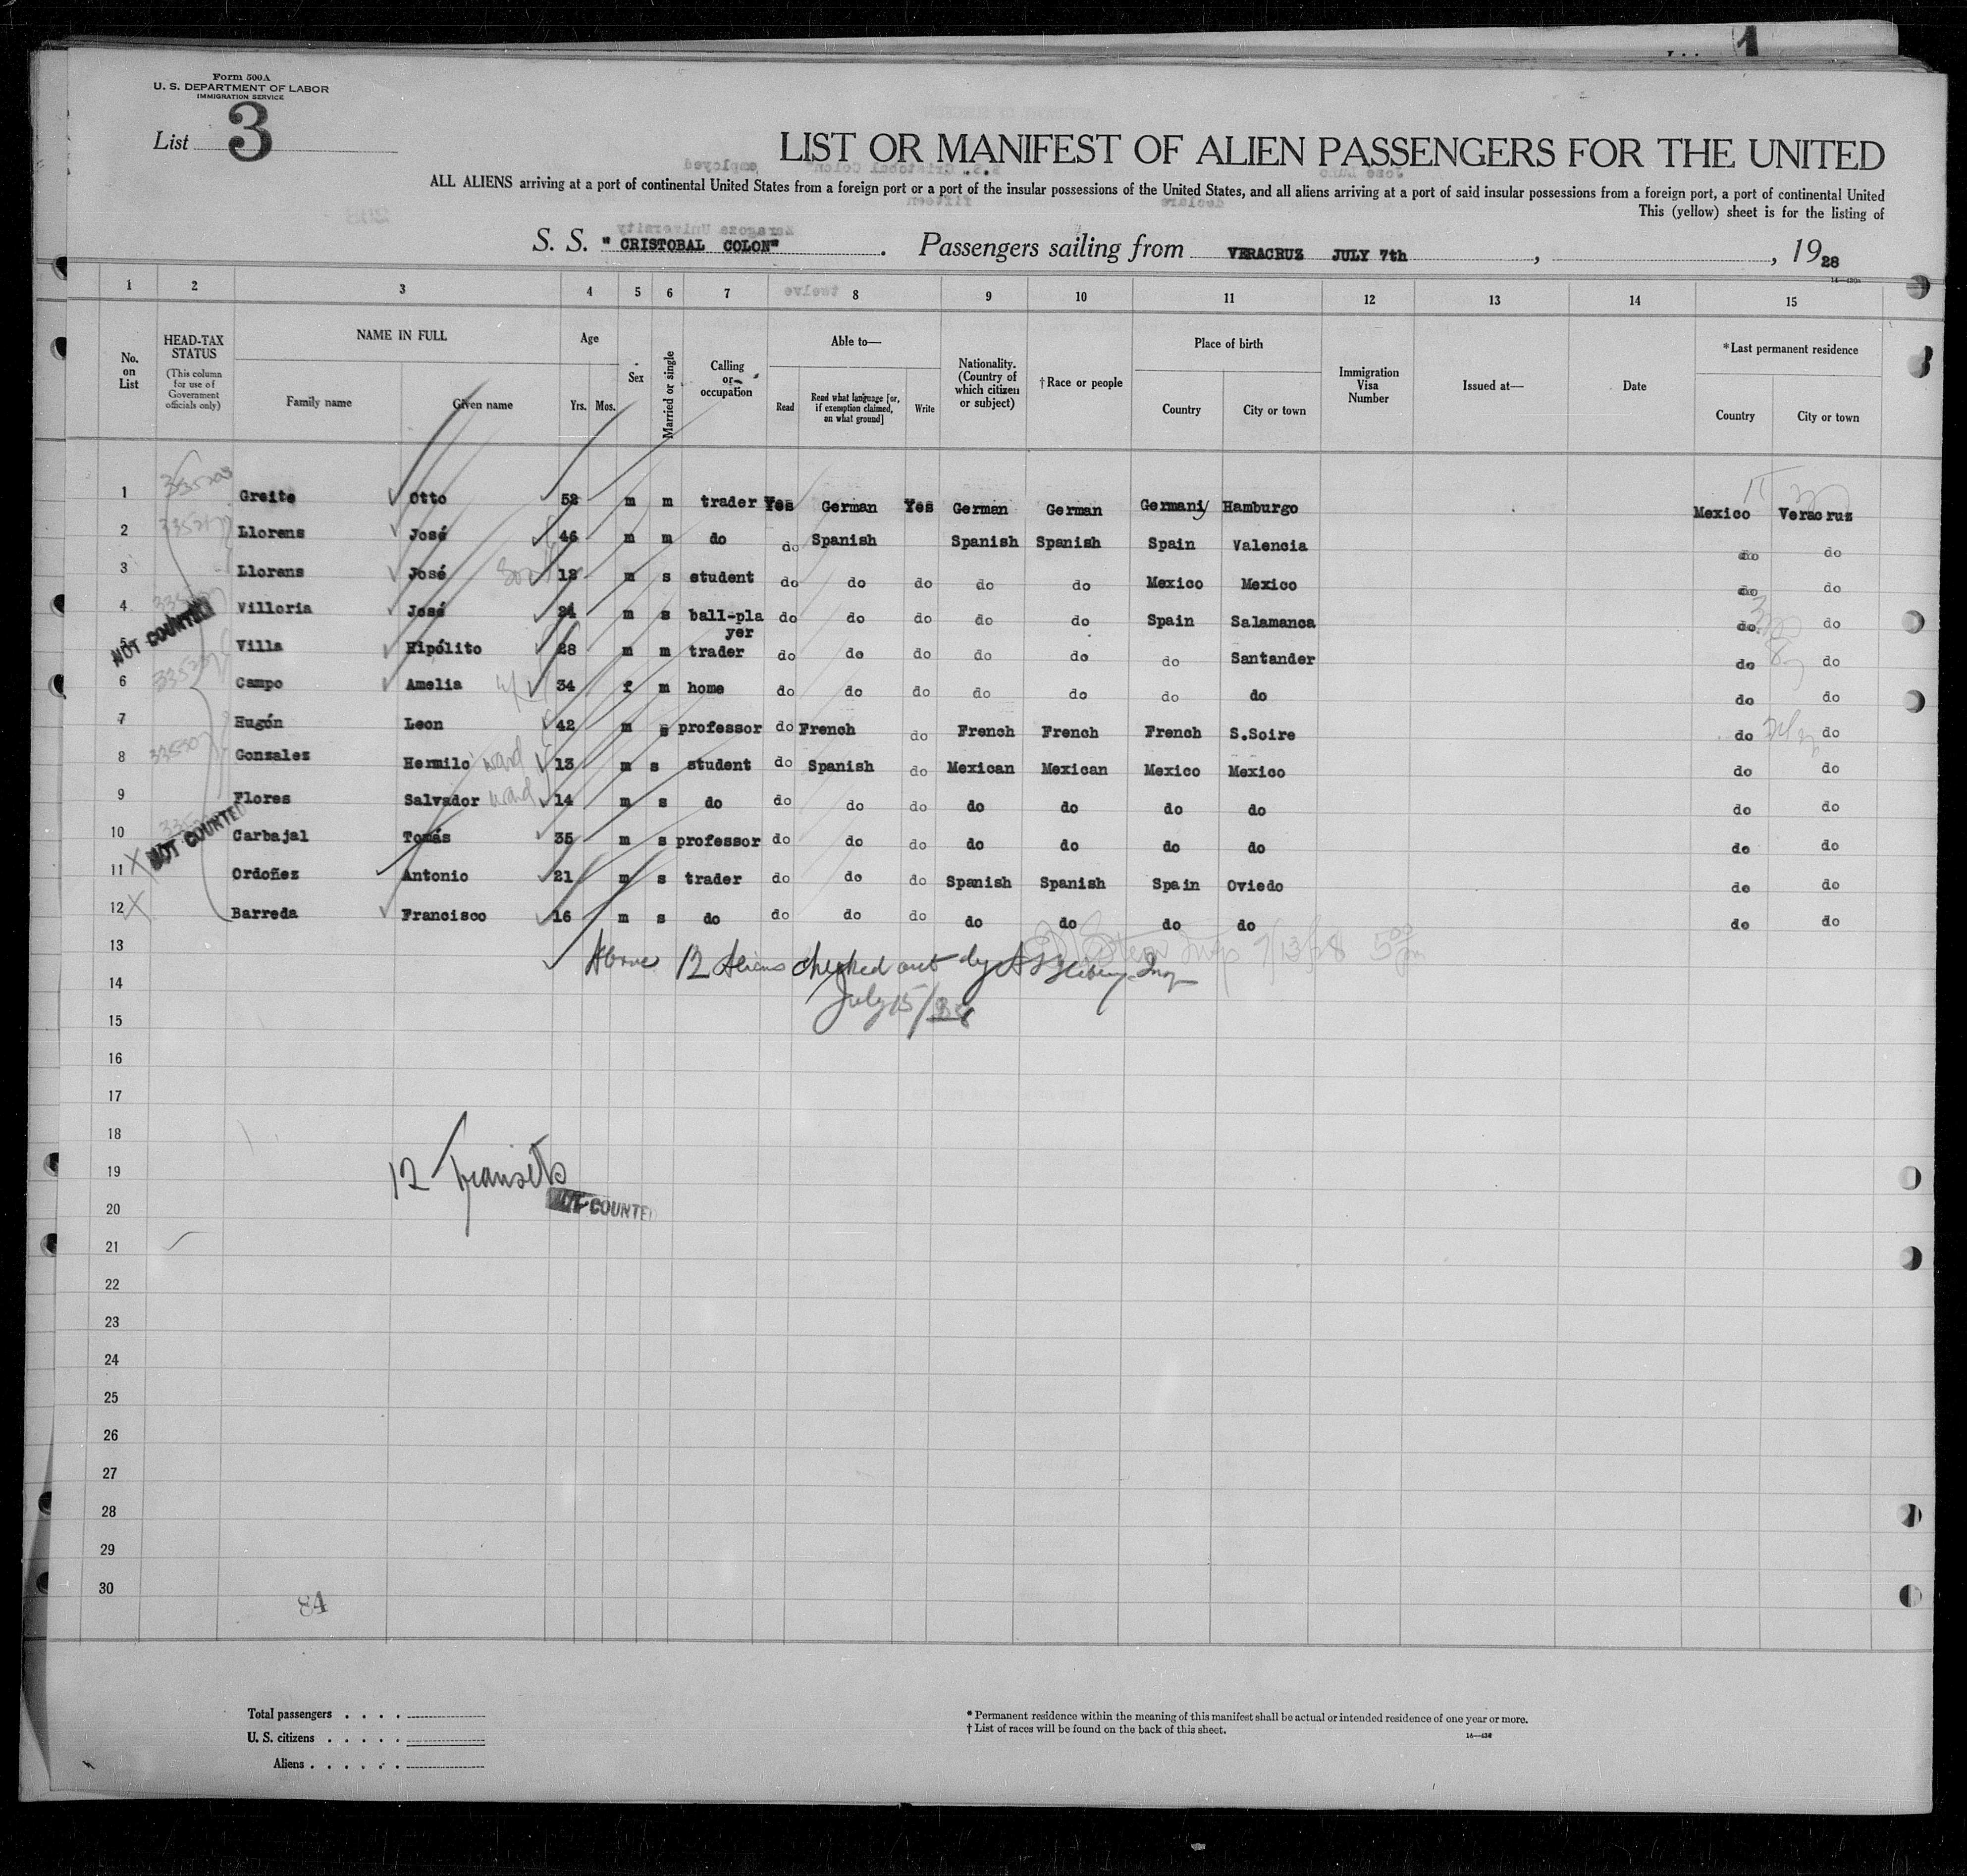 1
Form 500A
U. S. DEPARTMENT OF LABOR
IMMIGRATION SERVICE
List 3
LIST OR MANIFEST OF ALIEN PASSENGERS FOR THE UNITED
ALL ALIENS arriving at a port of continental United States from a foreign port or a port of the insular possessions of the United States, and all aliens arriving at a port of said insular possessions from a foreign port, a port of continental United
This (yellow) sheet is for the listing of
S. S. "CRISTOBAL COLON". Passengers sailing from VERACRUZ JULY 7th, , 1928
1 2 3 4 5 6 7 8 9 10 11 12 13 14 15
No. on List
HEAD-TAX STATUS (This column for use of Government officials only)
NAME IN FULL
Family name Given name
Age
Yrs. Mos.
Sex
Married or single
Calling or occupation
Able to—
Read Read what language [or, if exemption claimed, on what ground] Write
Nationality. (Country of which citizen or subject)
†Race or people
Place of birth
Country City or town
Immigration Visa Number
Issued at—
Date
*Last permanent residence
Country City or town
1 Greite Otto 52 m m trader Yes German Yes German German Germany Hamburgo Mexico Veracruz
2 Llorens José 46 m m do do Spanish Spanish Spanish Spain Valencia do do
3 Llorens José m s student do do do do do Mexico Mexico do do
4 Villoria José 24 m s ball-pla yer do do do do do Spain Salamanca do do
5 Villa Hipólito 28 m m trader do do do do do do Santander do do
6 Campo Amelia 34 f m home do do do do do do do do do
7 Hugón Leon 42 m s professor do French do French French French S.Soire do do
8 Gonzalez Hermilo ward 13 m s student do Spanish do Mexican Mexican Mexico Mexico do do
9 Flores Salvador ward 14 m s do do do do do do do do do do
10 Carbajal Tomás 35 m s professor do do do do do do do do do
11 Ordoñez Antonio 21 m s trader do do do Spanish Spanish Spain Oviedo do do
12 Barreda Francisco 16 m s do do do do do do do do do do
NOT COUNTED
NOT COUNTED
13
Above 12 Aliens checked out by Insp
7/13/28 5 00 pm
14
July 15/28
15
16
17
18
19
12 Transits
NOT COUNTED
20
21
22
23
24
25
26
27
28
29
30
84
Total passengers . . . .
U. S. citizens . . . . .
Aliens . . . . . .
* Permanent residence within the meaning of this manifest shall be actual or intended residence of one year or more.
† List of races will be found on the back of this sheet.